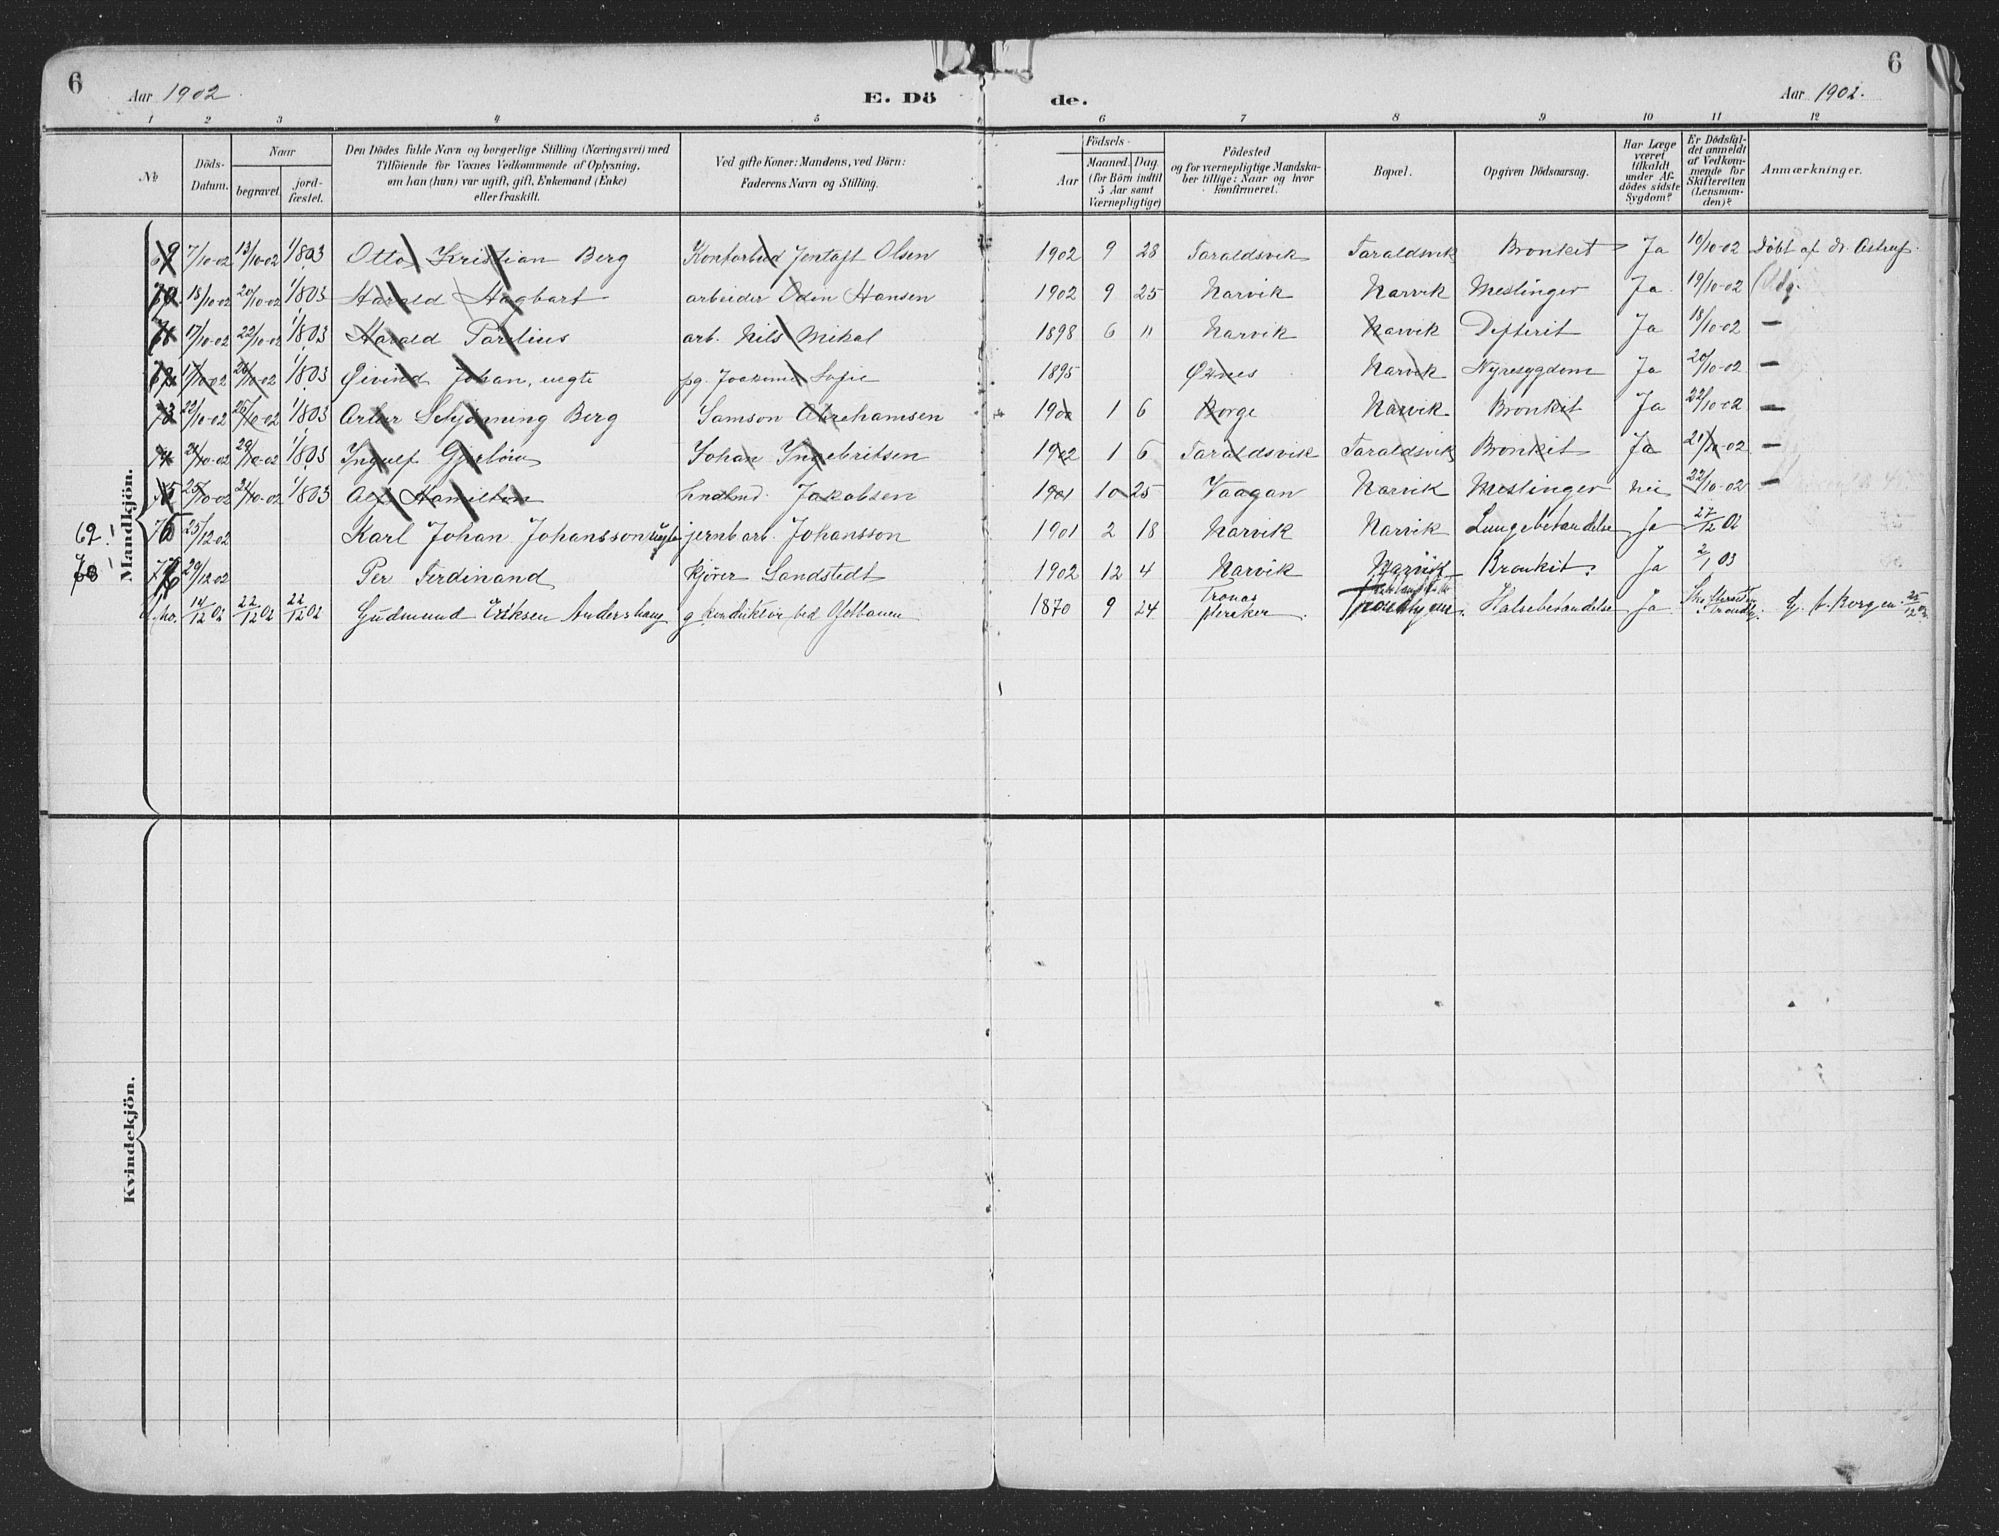 6
6
Aar 1902.
E. Dö
de.
Aar 1902.
1 2 3 4 5 6 7 8 9 10 11 12
№
Döds-Datum.
Naar
begravet.
jord-fæstet.
Den Dödes fulde Navn og borgerlige Stilling (Næringsvei) med
Tilföiende for Voxnes Vedkommende af Oplysning,
om han (hun) var ugift, gift, Enkemand (Enke)
eller fraskilt.
Ved gifte Koner: Mandens, ved Börn:
Faderens Navn og Stilling.
Födsels-
Aar
Maaned. Dag.
(for Börn indtil
5 Aar samt
Værnepligtige)
Födested
og for værnepligtige Mandska-
ber tillige: Naar og hvor
konfirmeret.
Bopæl.
Opgiven Dödsaarsag.
Har Læge
været
tilkaldt
under Af-
dödes sidste
Sygdom?
Er Dödsfal-
det anmeldt
af Vedkom-
mende for
Skifteretten
(Lensman-
den)?
Anmærkninger.
Mandkjön.
69 7/10-02 13/10-02 1/803 Otto Kristian Berg Kontorbud Jentoft Olsen 1902 9 28 Taraldsvik Taraldsvik Bronkit Ja 10/10-02 Døbt af dr. Astrup.
70 18/10-02 20/10-02 1/803 Harald Hagbart arbeider Oden Hansen 1902 9 25 Narvik Narvik Meslinger Ja 19/10-02
17/10-02 22/10-02 1/803 Harald Parelius arb. Nils Mikal 1898 6 " Narvik Narvik Difterit Ja 18/10-02 —
17/10-02 1/803 Øivind Johan, uegte pg. Joakime Sofie 1895 Øxnes Narvik Nyresygdom Ja 20/10-02 —
73 22/10-02 25/10-02 1/803 Artur Schjønning Berg Samson Abrahamsen 1 6 Borge Narvik Bronkit Ja 22/10-02 —
74 21/10-02 29/10-02 1/803 Ingulf Johan Ingebritsen 1902 1 6 Taraldsvik Taraldsvik Bronkit Ja 21/10-02 —
75 25/10-02 1/803 Alf Hamilton Jakobsen 1901 10 25 Vaagan Narvik Meslinger Nei 22/10-02 —
76 25/12-02 Karl Johan Johansson jernb arb. Johansson 1901 2 18 Narvik Narvik Lungebetændelse Ja 27/12 02
29/12-02 Per Ferdinand kjører Sandstedt 1902 12 4 Narvik Narvik Bronkit. Ja 2/1 03
14/12 02 22/12 02 22/12 02 Gudmund Eriksen g konduktør ved Ofotbanen 1870 9 24 Trondhjem. Halsebetændelse Ja
Kvindekjön.